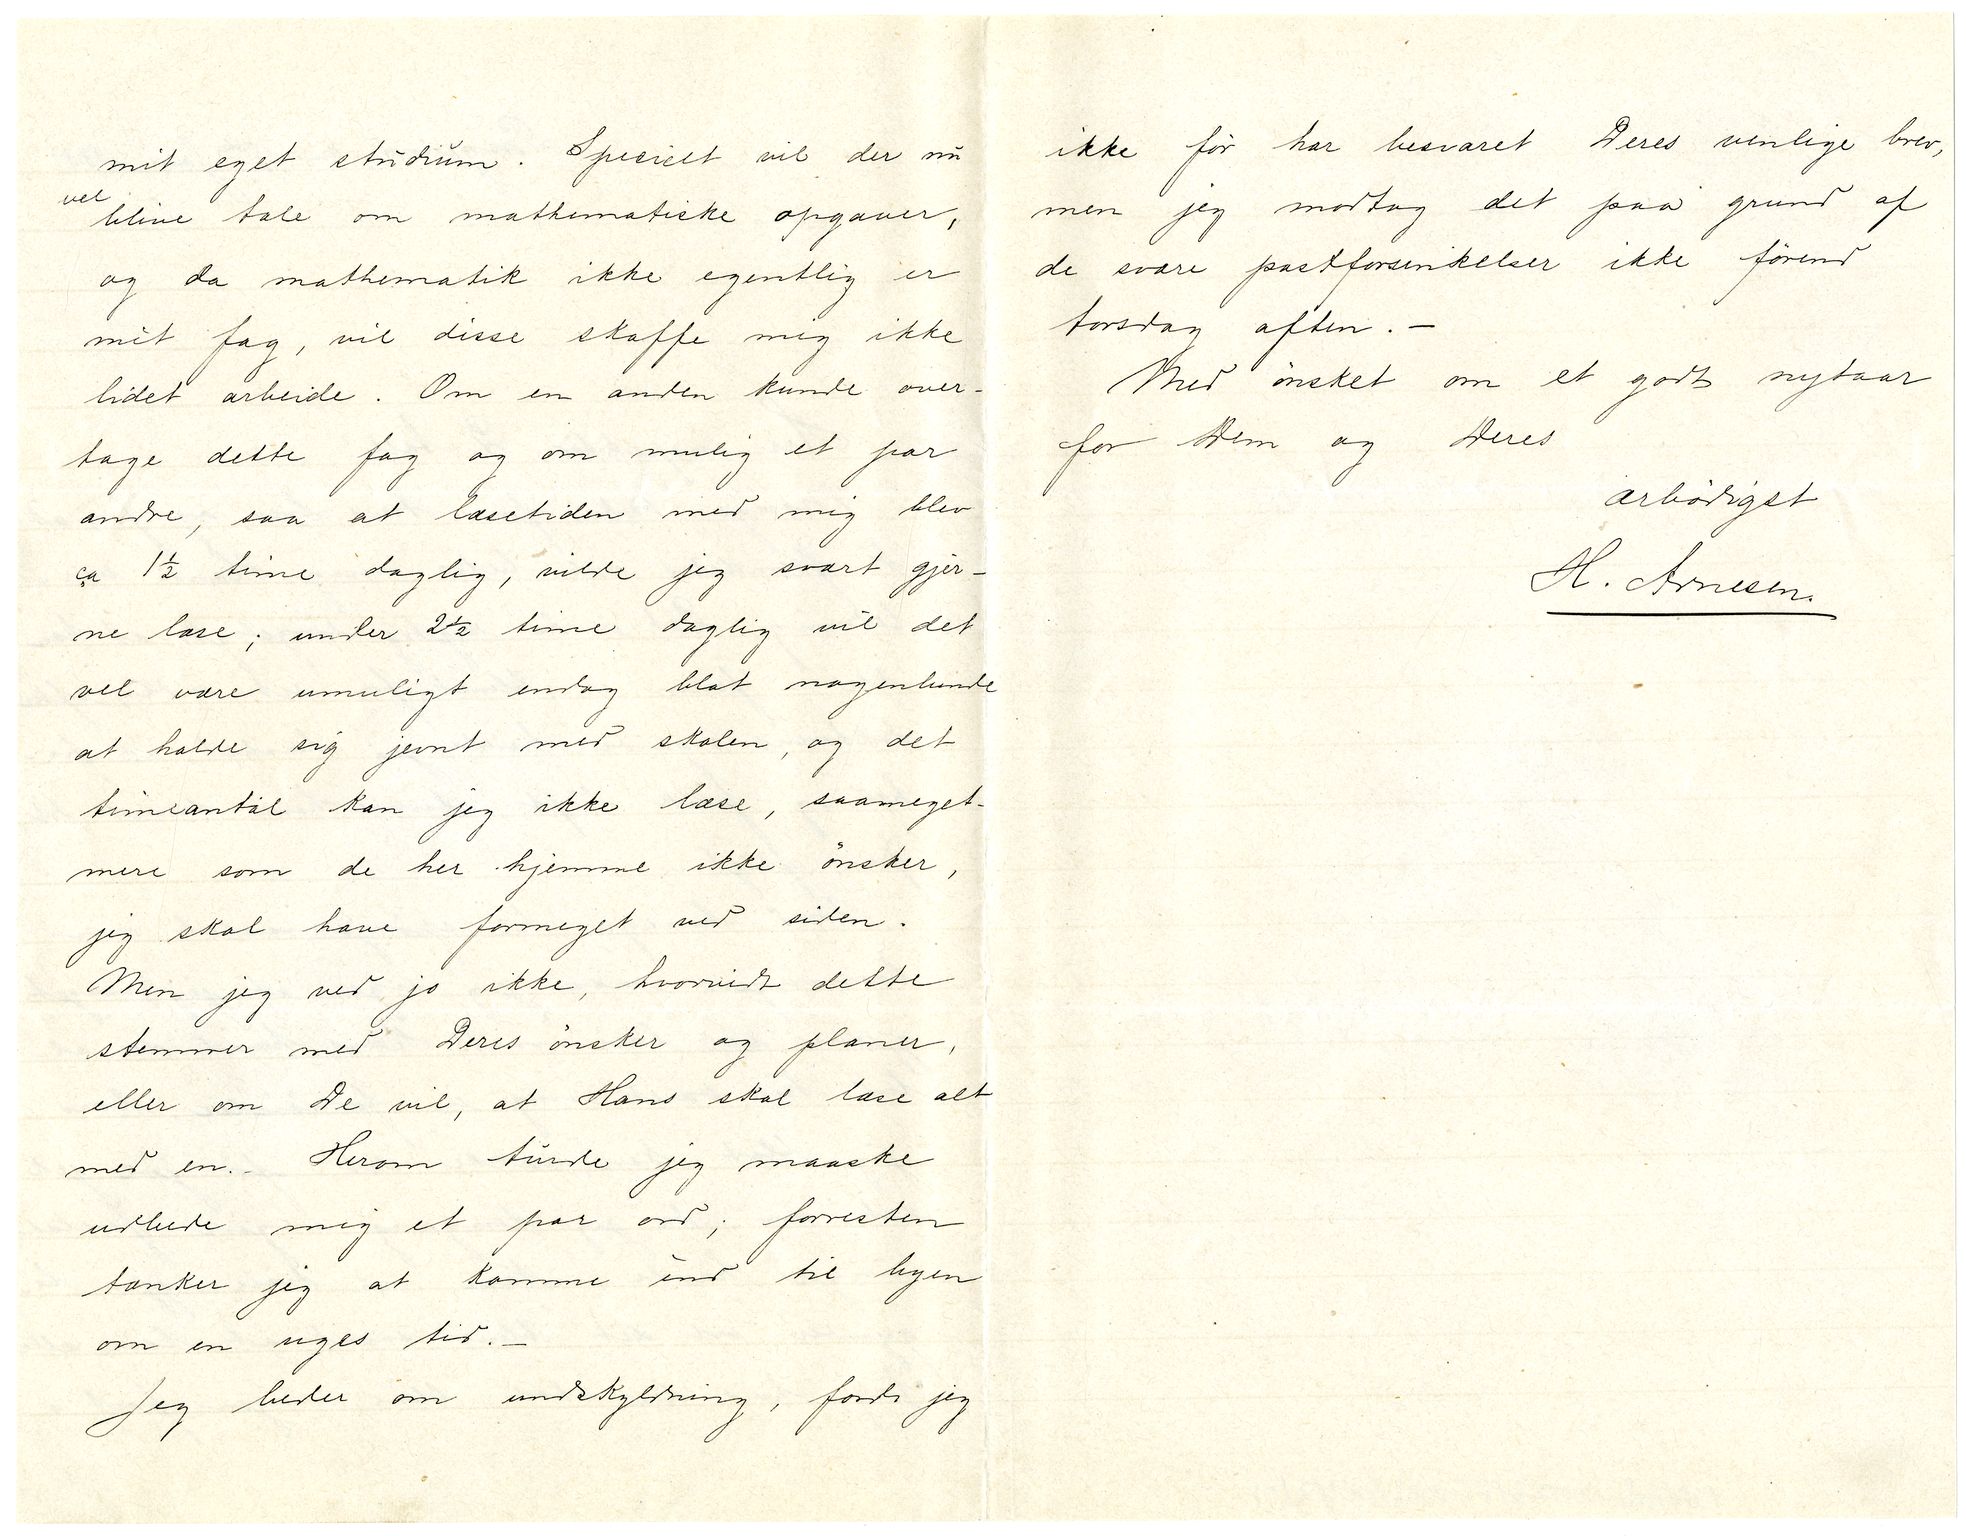 mit eget studium. Specielt vil der nu
vel
blive tale om mathematiske opgaver,
og da mathematik ikke egentlig er
mit fag, vil disse skaffe mig ikke
lidet arbeide. Om en anden kunde over-
tage dette fag og om mulig et par
andre, saa at læsetiden med mig blev
ca 1½ time daglig, vilde jeg svært gjer-
ne læse; under 2½ time daglig vil det
vel være umuligt endog blot nogenlunde
at holde sig jevnt med skolen, og det
timeantal kan jeg ikke læse, saameget-
mere som de her hjemme ikke ønsker,
jeg skal have formeget ved siden.
Men jeg ved jo ikke, hvorvidt dette
stemmer med Deres ønsker og planer,
eller om De vil, at Hans skal læse alt
med en. – Herom turde jeg maaske
udbede mig et par ord; forresten
tænker jeg at komme ind til byen
om en uges tid. –
Jeg beder om undskyldning, fordi jeg
ikke før har besvaret Deres venlige brev,
men jeg modtog det paa grund af
de svære postforsinkelser ikke førend
torsdag aften. –
Med ønsket om et godt nytaar
for Dem og Deres
ærbødigst
H. Arnesen.